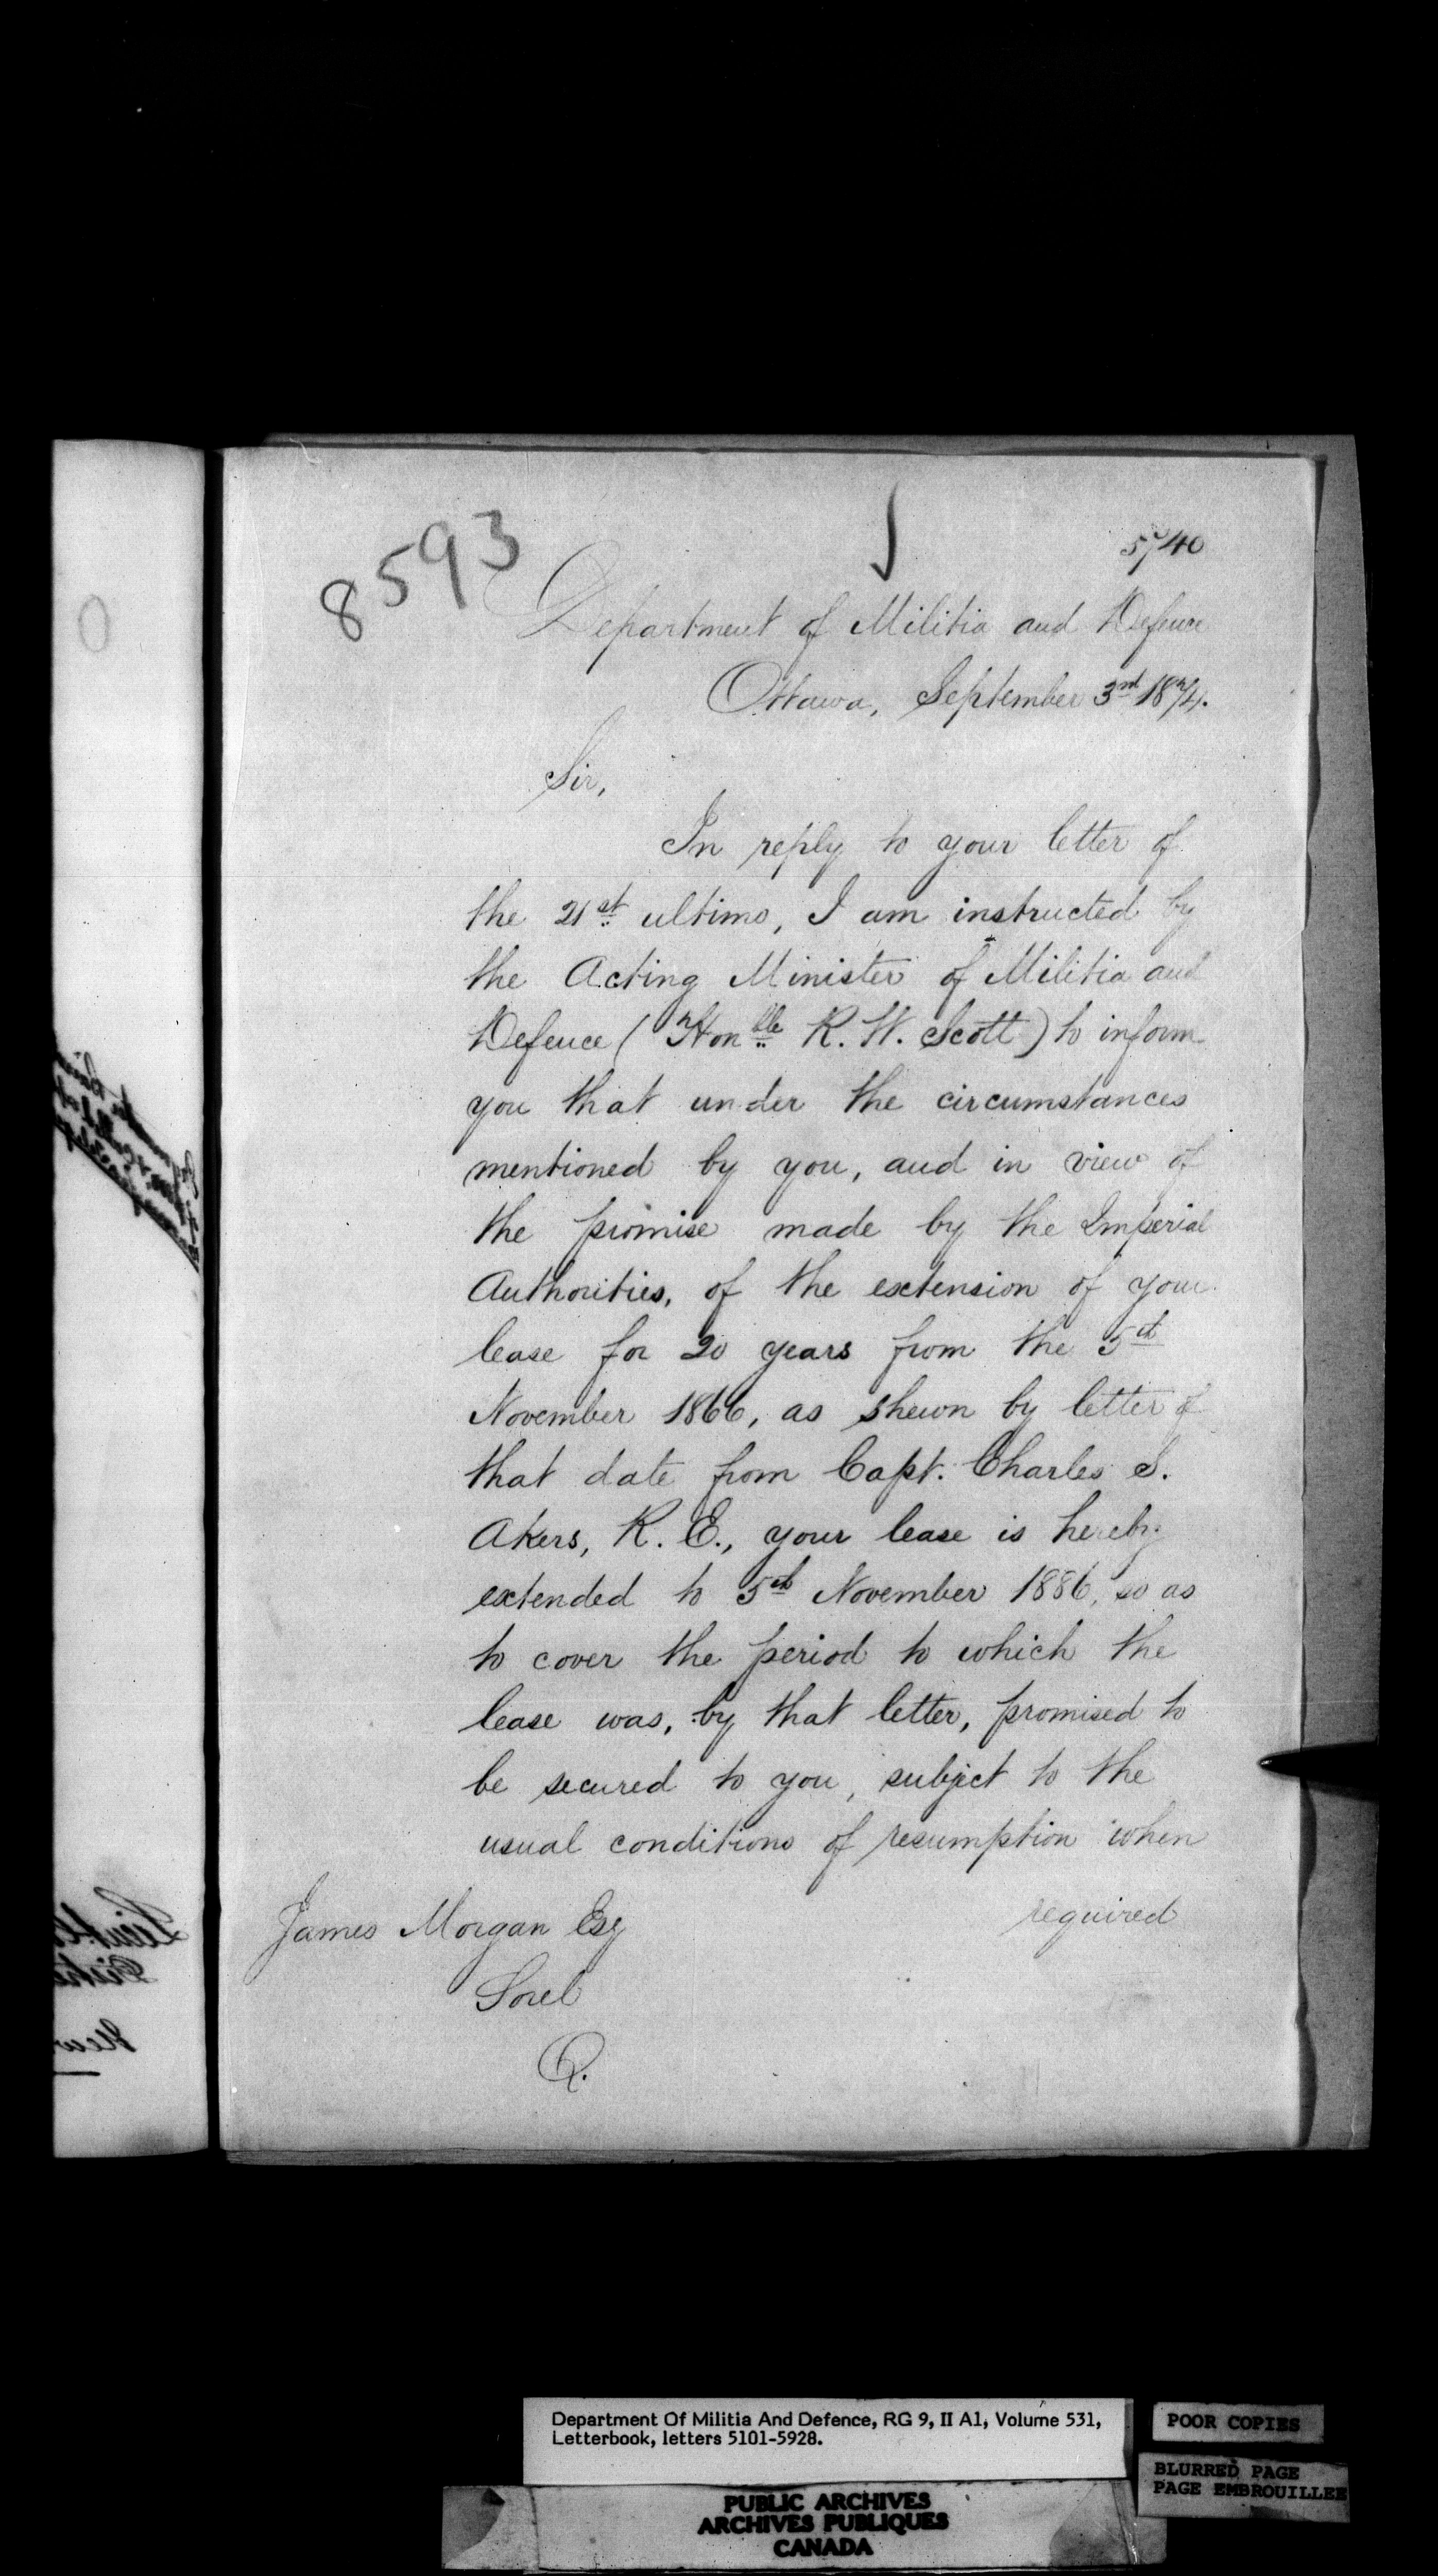 8593
5740
Department of Militia and Defence
Ottawa, September 3rd 1874.
Sir,
In reply to your letter of
the 21st ultimo, I am instructed by
the Acting Minister of Militia and
Defence (Honble R. W. Scott) to inform
you that under the circumstances
mentioned by you, and in view of
the promise made by the Imperial
Authorities, of the extension of your
lease for 20 years from the 5th
November 1866, as shewn by letter of
that date from Capt. Charles S.
Akers, R. E., your lease is hereby
extended to 5th November 1886, so as
to cover the period to which the
lease was, by that letter, promised to
be secured to you, subject to the
usual conditions of resumption when
required
James Morgan Esq
Sorel
Q.
Department Of Militia And Defence, RG 9, II A1, Volume 531,
Letterbook, letters 5101-5928.
POOR COPIES
BLURRED PAGE
PAGE EMBROUILLEE
PUBLIC ARCHIVES
ARCHIVES PUBLIQUES
CANADA